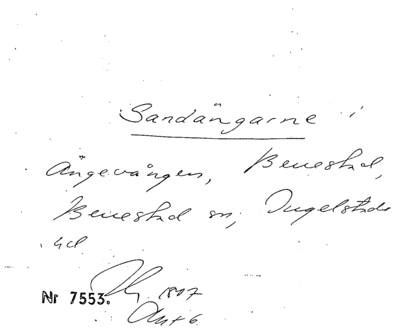 Sandängarne i
Ängevången, Benestad,
Benestad sn, Ingelstads
hd
Nr 7553. 1807
Akt 6